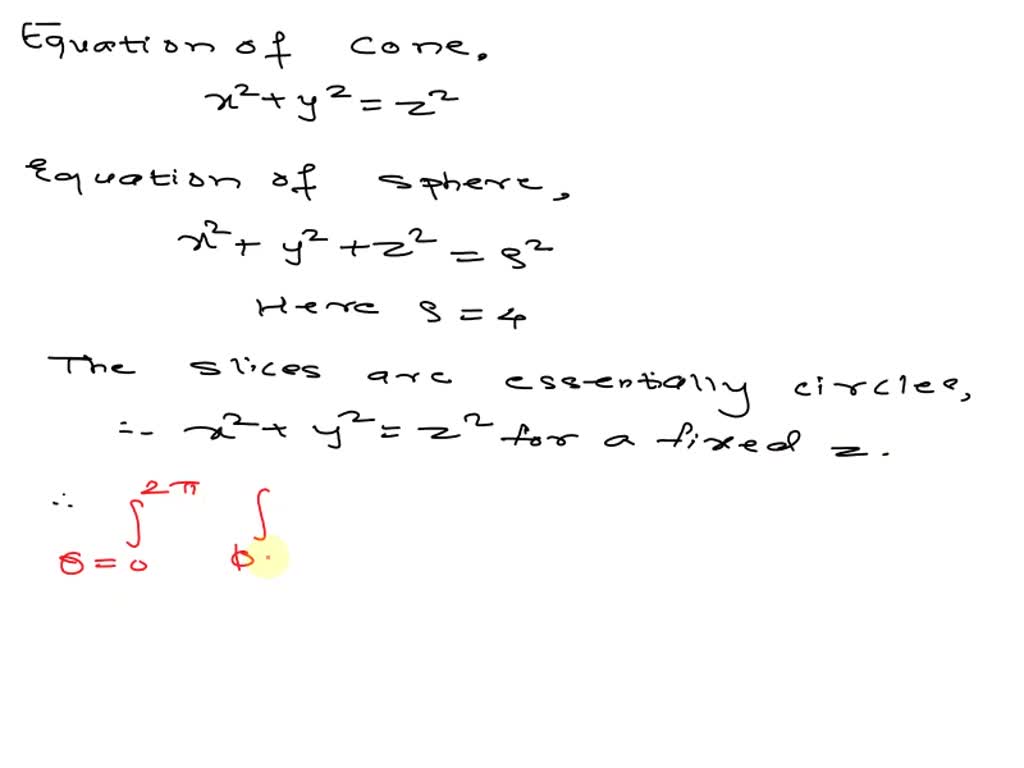 Equation of cone,
x² + y² = z²
Equation of sphere,
x² + y² + z² = ρ²
Here ρ = 4
The slices are essentially circles,
∴ x² + y² = z² for a fixed z.
∴ ∫ 2π ∫
θ = 0 ϕ